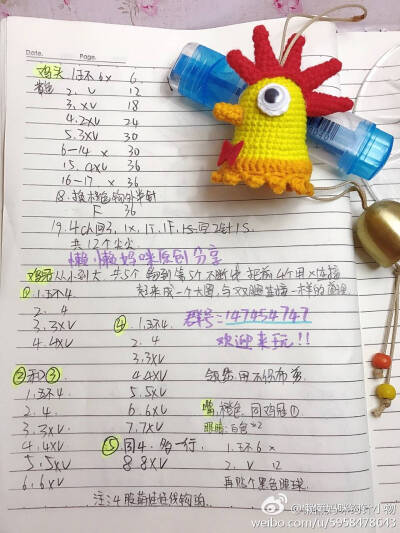 Date. Page.
鸡头 1.环6x 6.
黄色 2. V 12
3. xV 18
4. 2xV 24
5. 3xV 30
6-14 x 30
15. 4xV 36
16-17. x 36
18. 换橙色钩外半针
F 36
19. 4ch回3, 1x, 1T, 1F, 1s.
共12个尖尖
懒懒妈咪原创分享
鸡冠从小到大, 共5个
① 1.环4.
2. 4
3. 3xV
4. 4xV
起来成一个大圈, 与双腿连接一样的
群号: 147454747
欢迎来玩!!
④ 1.环4
2. 4
3. 3xV
4. 4xV
5. 5xV
6. 6xV
7. 7xV
②和③
1.环4
2. 4.
3. 3xV
4. 4xV
5. 5xV
6. 6xV
⑤ 同4. 多一行
8. 8xV
领结: 用不织布剪
嘴: 橙色. 同鸡冠①
眼睛: 白色*2
1.环6x
2. V 12
再贴个黑色眼球.
注: 4股
weibo.com/u/5958478643